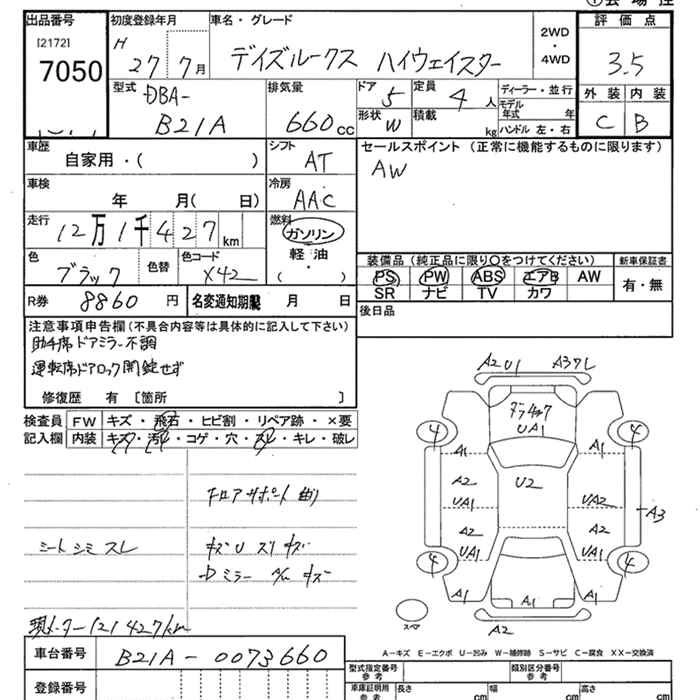 出品番号
[2172]
7050
初度登録年月
H 27 7月
車名・グレード
デイズルークス ハイウェイスター
2WD
・
4WD
評価点
3.5
外装 内装
C B
型式
DBA-
B21A
排気量
660cc
ドア
5
定員
4人
形状
W
積載
kg
ディーラー・並行
モデル年式 年
ハンドル 左・右
車歴
自家用・( )
シフト
AT
セールスポイント(正常に機能するものに限ります)
AW
車検
年 月( 日)
冷房
AAC
走行
12万1千427km
燃料
ガソリン
軽油
・
( )
色
ブラック
色替
色コード
X42
装備品(純正品に限り○をつけてください)
PS PW ABS エアB AW
SR ナビ TV カワ
新車保証書
有・無
R券
8860円
名変通知期限 月 日
後日品
注意事項申告欄(不具合内容等は具体的に記入して下さい)
助手席ドアミラー不調
運転席ドアロック開錠せず
修復歴 有 〔箇所 〕
検査員
記入欄
FW キズ・飛石・ヒビ割・リペア跡・×要
内装 キズ・汚れ・コゲ・穴・スレ・キレ・破レ
シートシミスレ
現メーター121427km
A2U1
UA1
4
4
A1
A1
A2
U2
UA1
UA2
A3
A2
A2
UA1
UA1
4
4
A1
A1
A1
A2
スペア
A-キズ E-エクボ U-凹み W-補修跡 S-サビ C-腐食 XX-交換済
車台番号
B21A-0073660
登録番号
型式指定番号
類別区分番号
車庫証明用
参考
長さ cm
幅 cm
高さ cm